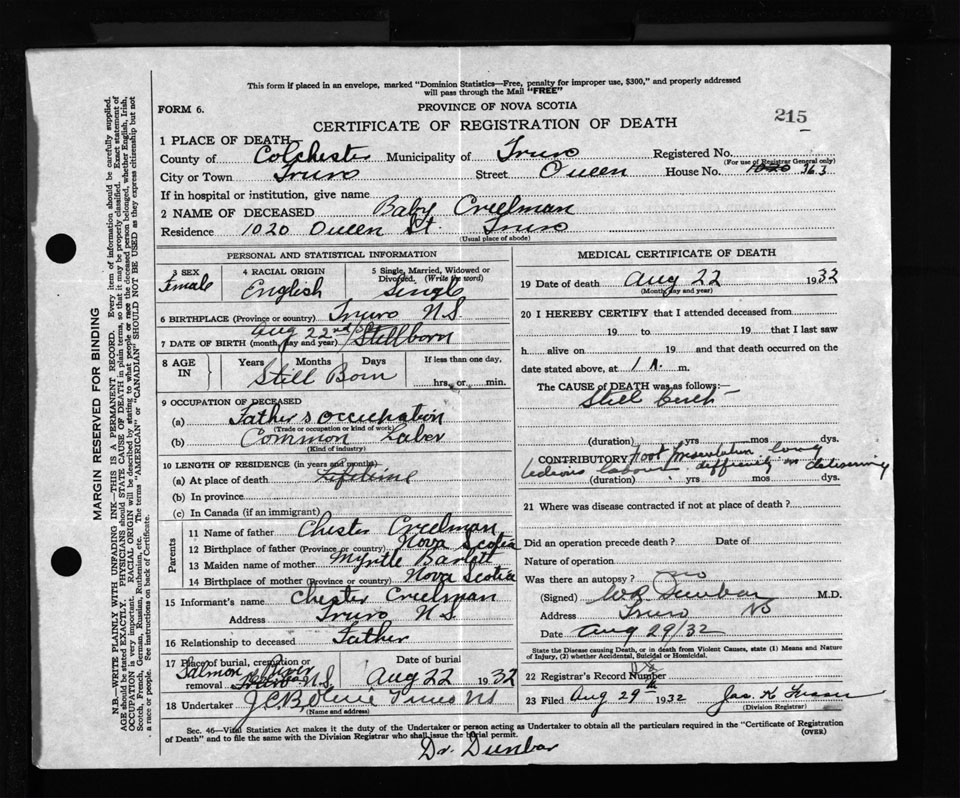 This form if placed in an envelope, marked "Dominion Statistics—Free, penalty for improper use, $300," and properly addressed
will pass through the Mail "FREE"
FORM 6.
PROVINCE OF NOVA SCOTIA
215
CERTIFICATE OF REGISTRATION OF DEATH
1 PLACE OF DEATH
County of Colchester Municipality of Truro Registered No.
(For use of Registrar General only)
City or Town Truro Street Queen House No. 1020 363
If in hospital or institution, give name
2 NAME OF DECEASED Baby Creelman
Residence 1020 Queen St. Truro
(Usual place of abode)
PERSONAL AND STATISTICAL INFORMATION
3 SEX Female
4 RACIAL ORIGIN English
5 Single, Married, Widowed or Divorced. (Write the word) Single
6 BIRTHPLACE (Province or country) Truro N.S.
7 DATE OF BIRTH (month, day and year) Aug 22nd/32 Stillborn
8 AGE IN Years Months Days If less than one day,
Still Born hrs. or min.
9 OCCUPATION OF DECEASED
(a) Father's occupation
(Trade or occupation or kind of work)
(b) Common Labor
(Kind of industry)
10 LENGTH OF RESIDENCE (in years and months)
(a) At place of death Lifetime
(b) In province
(c) In Canada (if an immigrant)
Parents
11 Name of father Chester Creelman
12 Birthplace of father (Province or country) Nova Scotia
13 Maiden name of mother Myrtle
14 Birthplace of mother (Province or country) Nova Scotia
15 Informant's name Chester Creelman
Address Truro N.S.
16 Relationship to deceased Father
17 Place of burial, cremation or removal Salmon River Truro N.S.
Date of burial Aug 22 1932
18 Undertaker Truro NS
(Name and address)
MEDICAL CERTIFICATE OF DEATH
19 Date of death Aug 22 1932
(Month, day and year)
20 I HEREBY CERTIFY that I attended deceased from
19 to 19 that I last saw
h alive on 19 and that death occurred on the
date stated above, at 1 A. m.
The CAUSE OF DEATH was as follows:—
Still birth
(duration) yrs mos dys.
CONTRIBUTORY Foot Presentation long
tedious labour difficulty in delivering
(duration) yrs mos dys.
21 Where was disease contracted if not at place of death?
Did an operation precede death? Date of
Nature of operation
Was there an autopsy? no
(Signed) Dunbar M.D.
Address Truro NS
Date Aug 29/32
State the Disease causing Death, or in death from Violent Causes, state (1) Means and Nature
of Injury, (2) whether Accidental, Suicidal or Homicidal.
22 Registrar's Record Number
23 Filed Aug 29th 1932 Jas. K
(Division Registrar)
Sec. 46—Vital Statistics Act makes it the duty of the Undertaker or person acting as Undertaker to obtain all the particulars required in the "Certificate of Registration
of Death" and to file the same with the Division Registrar who shall issue the burial permit.
(OVER)
Dr. Dunbar
MARGIN RESERVED FOR BINDING
N.B.—WRITE PLAINLY WITH UNFADING INK—THIS IS A PERMANENT RECORD. Every item of information should be carefully supplied.
AGE should be stated EXACTLY. PHYSICIANS should STATE CAUSE OF DEATH in plain terms, so that it may be properly classified. Exact statement of
OCCUPATION is very important. RACIAL ORIGIN will be described by stating to what people or race the deceased person belonged, whether English, Irish,
Scotch, French, German, Russian, Ruthenian, etc. The terms "AMERICAN" or "CANADIAN" SHOULD NOT BE USED as they express citizenship but not
a race or people. See instructions on back of Certificate.